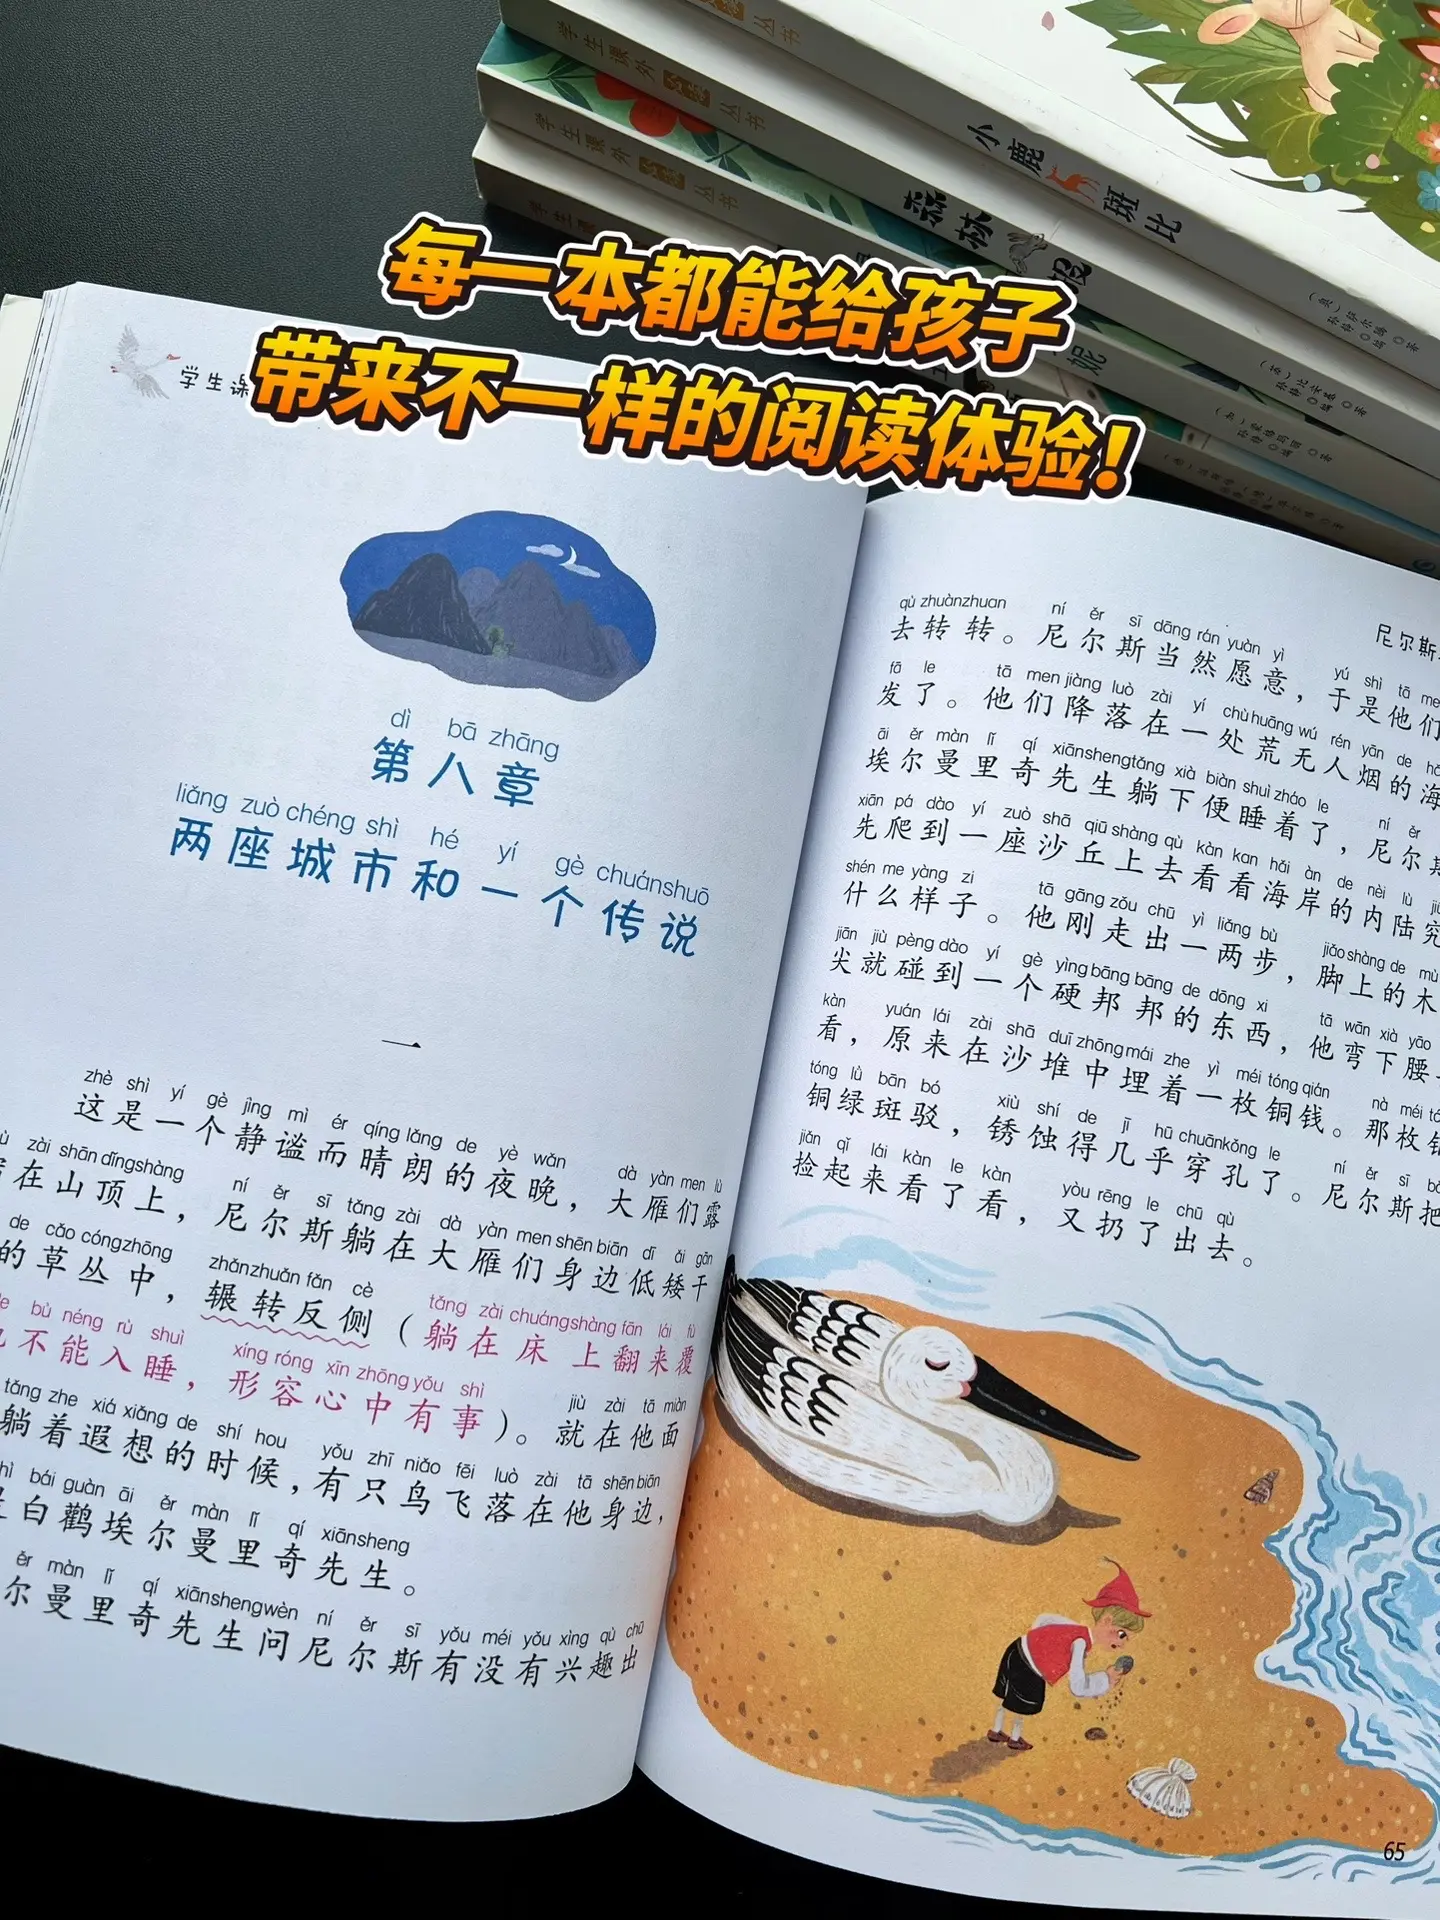 学生课外
丛书
小鹿斑比
学生课外
丛书
森林报
学生课外
丛书
妮
每一本都能给孩子
带来不一样的阅读体验！
学生课
dì bā zhāng
第八章
liǎng zuò chéng shì hé yí gè chuánshuō
两座城市和一个传说
一
zhè shì yí gè jìng mì ér qíng lǎng de yè wǎn dà yàn men lù
这是一个静谧而晴朗的夜晚，大雁们露
zài shān dǐngshàng ní ěr sī tǎng zài dà yàn men shēn biān dī ǎi gān
在山顶上，尼尔斯躺在大雁们身边低矮干
de cǎo cóngzhōng zhǎnzhuǎn fǎn cè tǎng zài chuángshàng fān lái fù
的草丛中，辗转反侧（躺在床上翻来覆
bù néng rù shuì xíng róng xīn zhōng yǒu shì jiù zài tā miàn
不能入睡，形容心中有事）。就在他面
tǎng zhe xiá xiǎng de shí hou yǒu zhī niǎo fēi luò zài tā shēn biān
躺着遐想的时候，有只鸟飞落在他身边，
bái guàn āi ěr màn lǐ qí xiānsheng
白鹳埃尔曼里奇先生。
ěr màn lǐ qí xiānshengwèn ní ěr sī yǒu méi yǒu xìng qù chū
尔曼里奇先生问尼尔斯有没有兴趣出
尼尔斯
qù zhuànzhuan ní ěr sī dāng rán yuàn yì yú shì tā me
去转转。尼尔斯当然愿意，于是他们
fā le tā men jiàng luò zài yí chù huāng wú rén yān de hǎ
发了。他们降落在一处荒无人烟的海
āi ěr màn lǐ qí xiānshengtǎng xià biàn shuì zháo le ní ěr
埃尔曼里奇先生躺下便睡着了，尼尔斯
xiān pá dào yí zuò shā qiū shàng qù kàn kan hǎi àn de nèi lù jiū
先爬到一座沙丘上去看看海岸的内陆究
shén me yàng zi tā gāng zǒu chū yì liǎng bù jiǎo shàng de mù
什么样子。他刚走出一两步，脚上的木
jiān jiù pèng dào yí gè yìng bāng bāng de dōng xi tā wān xià yāo
尖就碰到一个硬邦邦的东西，他弯下腰
kàn yuán lái zài shā duī zhōng mái zhe yì méi tóng qián nà méi tó
看，原来在沙堆中埋着一枚铜钱。那枚铜
tóng lǜ bān bó xiù shí de jī hū chuānkǒng le ní ěr sī bǎ
铜绿斑驳，锈蚀得几乎穿孔了。尼尔斯把
jiǎn qǐ lái kàn le kàn yòu rēng le chū qù
捡起来看了看，又扔了出去。
65